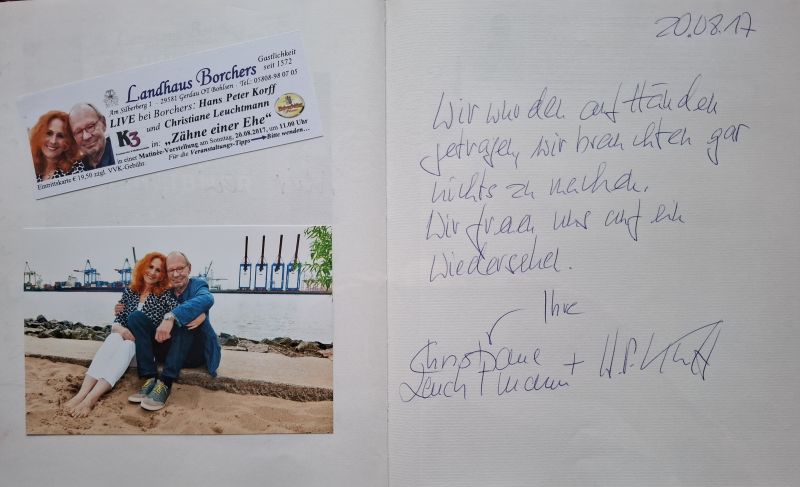 Landhaus Borchers
Gastlichkeit
seit 1572
Am Silberberg 1 - 29581 Gerdau OT Bohlsen - Tel.: 05808-98 07 05
LIVE bei Borchers: Hans Peter Korff
und Christiane Leuchtmann
K3
in: „Zähne einer Ehe“
in einer Matinée-Vorstellung am Sonntag, 20.08.2017, um 11.00 Uhr
Für die Veranstaltungs-Tipps Bitte wenden...
Eintrittskarte € 19,50 zzgl. VVK-Gebühr
20.08.17
Wir wurden auf Händen
getragen, wir brauchten gar
nichts zu machen.
Wir freuen uns auf ein
Wiedersehen.
Ihre
Christiane
Leuchtmann + H.P. Korff